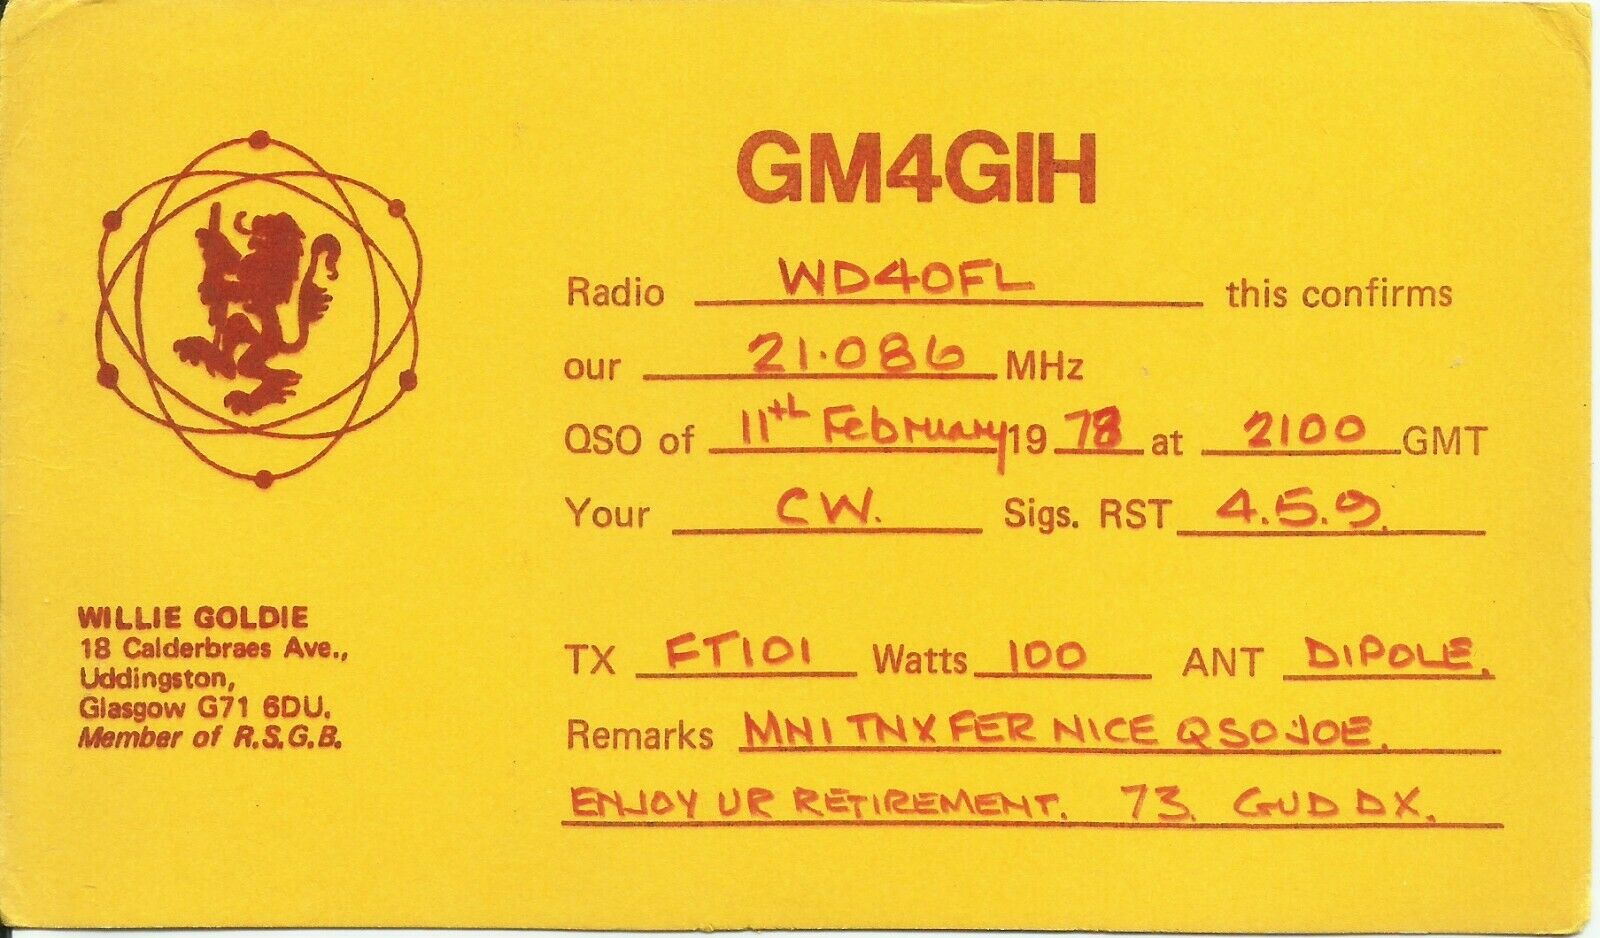 GM4GIH
Radio WD4OFL this confirms
our 21.086 MHz
QSO of 11th February 1978 at 2100 GMT
Your CW. Sigs. RST 4.5.9.
WILLIE GOLDIE
18 Calderbraes Ave.,
Uddingston,
Glasgow G71 6DU.
Member of R.S.G.B.
TX FT101 Watts 100 ANT DIPOLE.
Remarks MNI TNX FER NICE QSO JOE.
ENJOY UR RETIREMENT. 73. GUD DX.